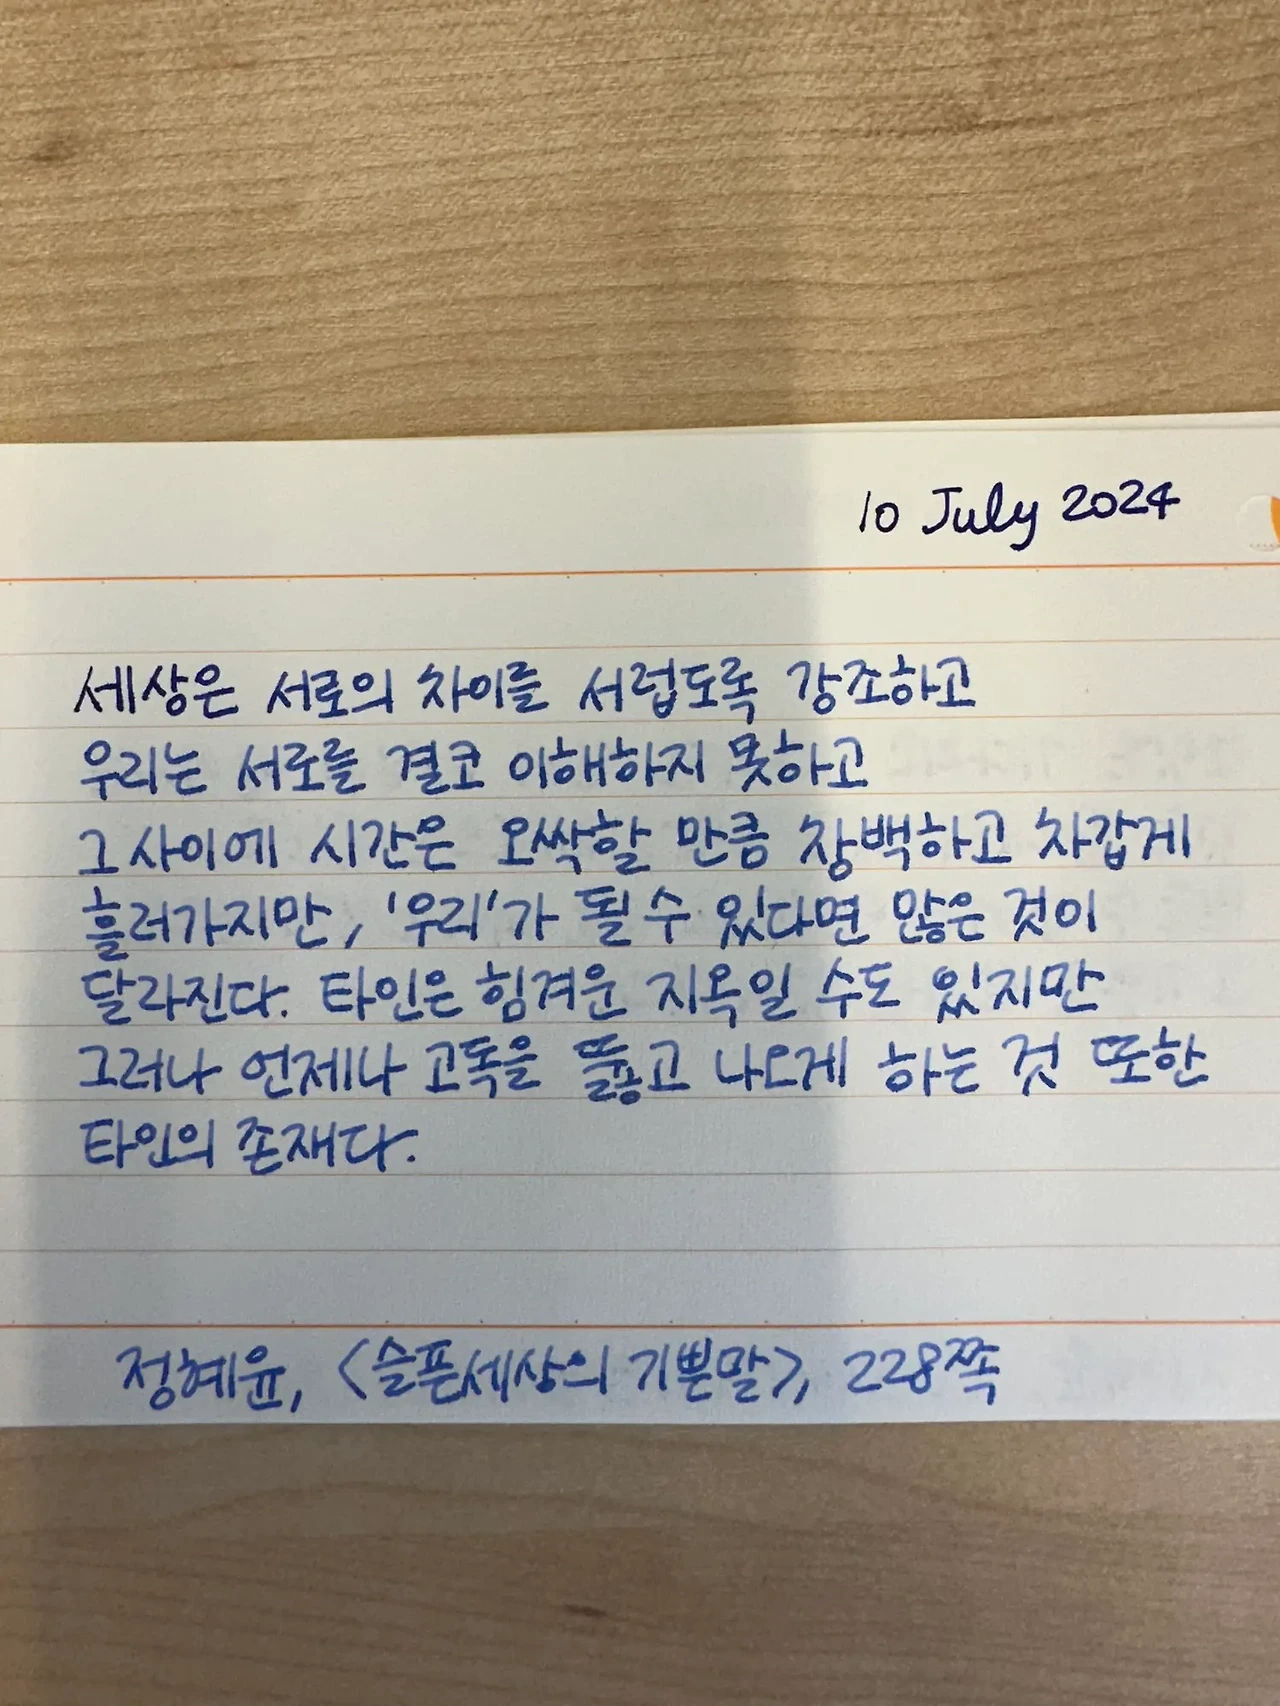 10 July 2024
세상은 서로의 차이를 서럽도록 강조하고
우리는 서로를 결코 이해하지 못하고
그 사이에 시간은 오싹할 만큼 창백하고 차갑게
흘러가지만, '우리'가 될 수 있다면 많은 것이
달라진다. 타인은 힘겨운 지옥일 수도 있지만
그러나 언제나 고독을 뚫고 나오게 하는 것 또한
타인의 존재다.
정혜윤, <슬픈세상의 기쁜말>, 228쪽